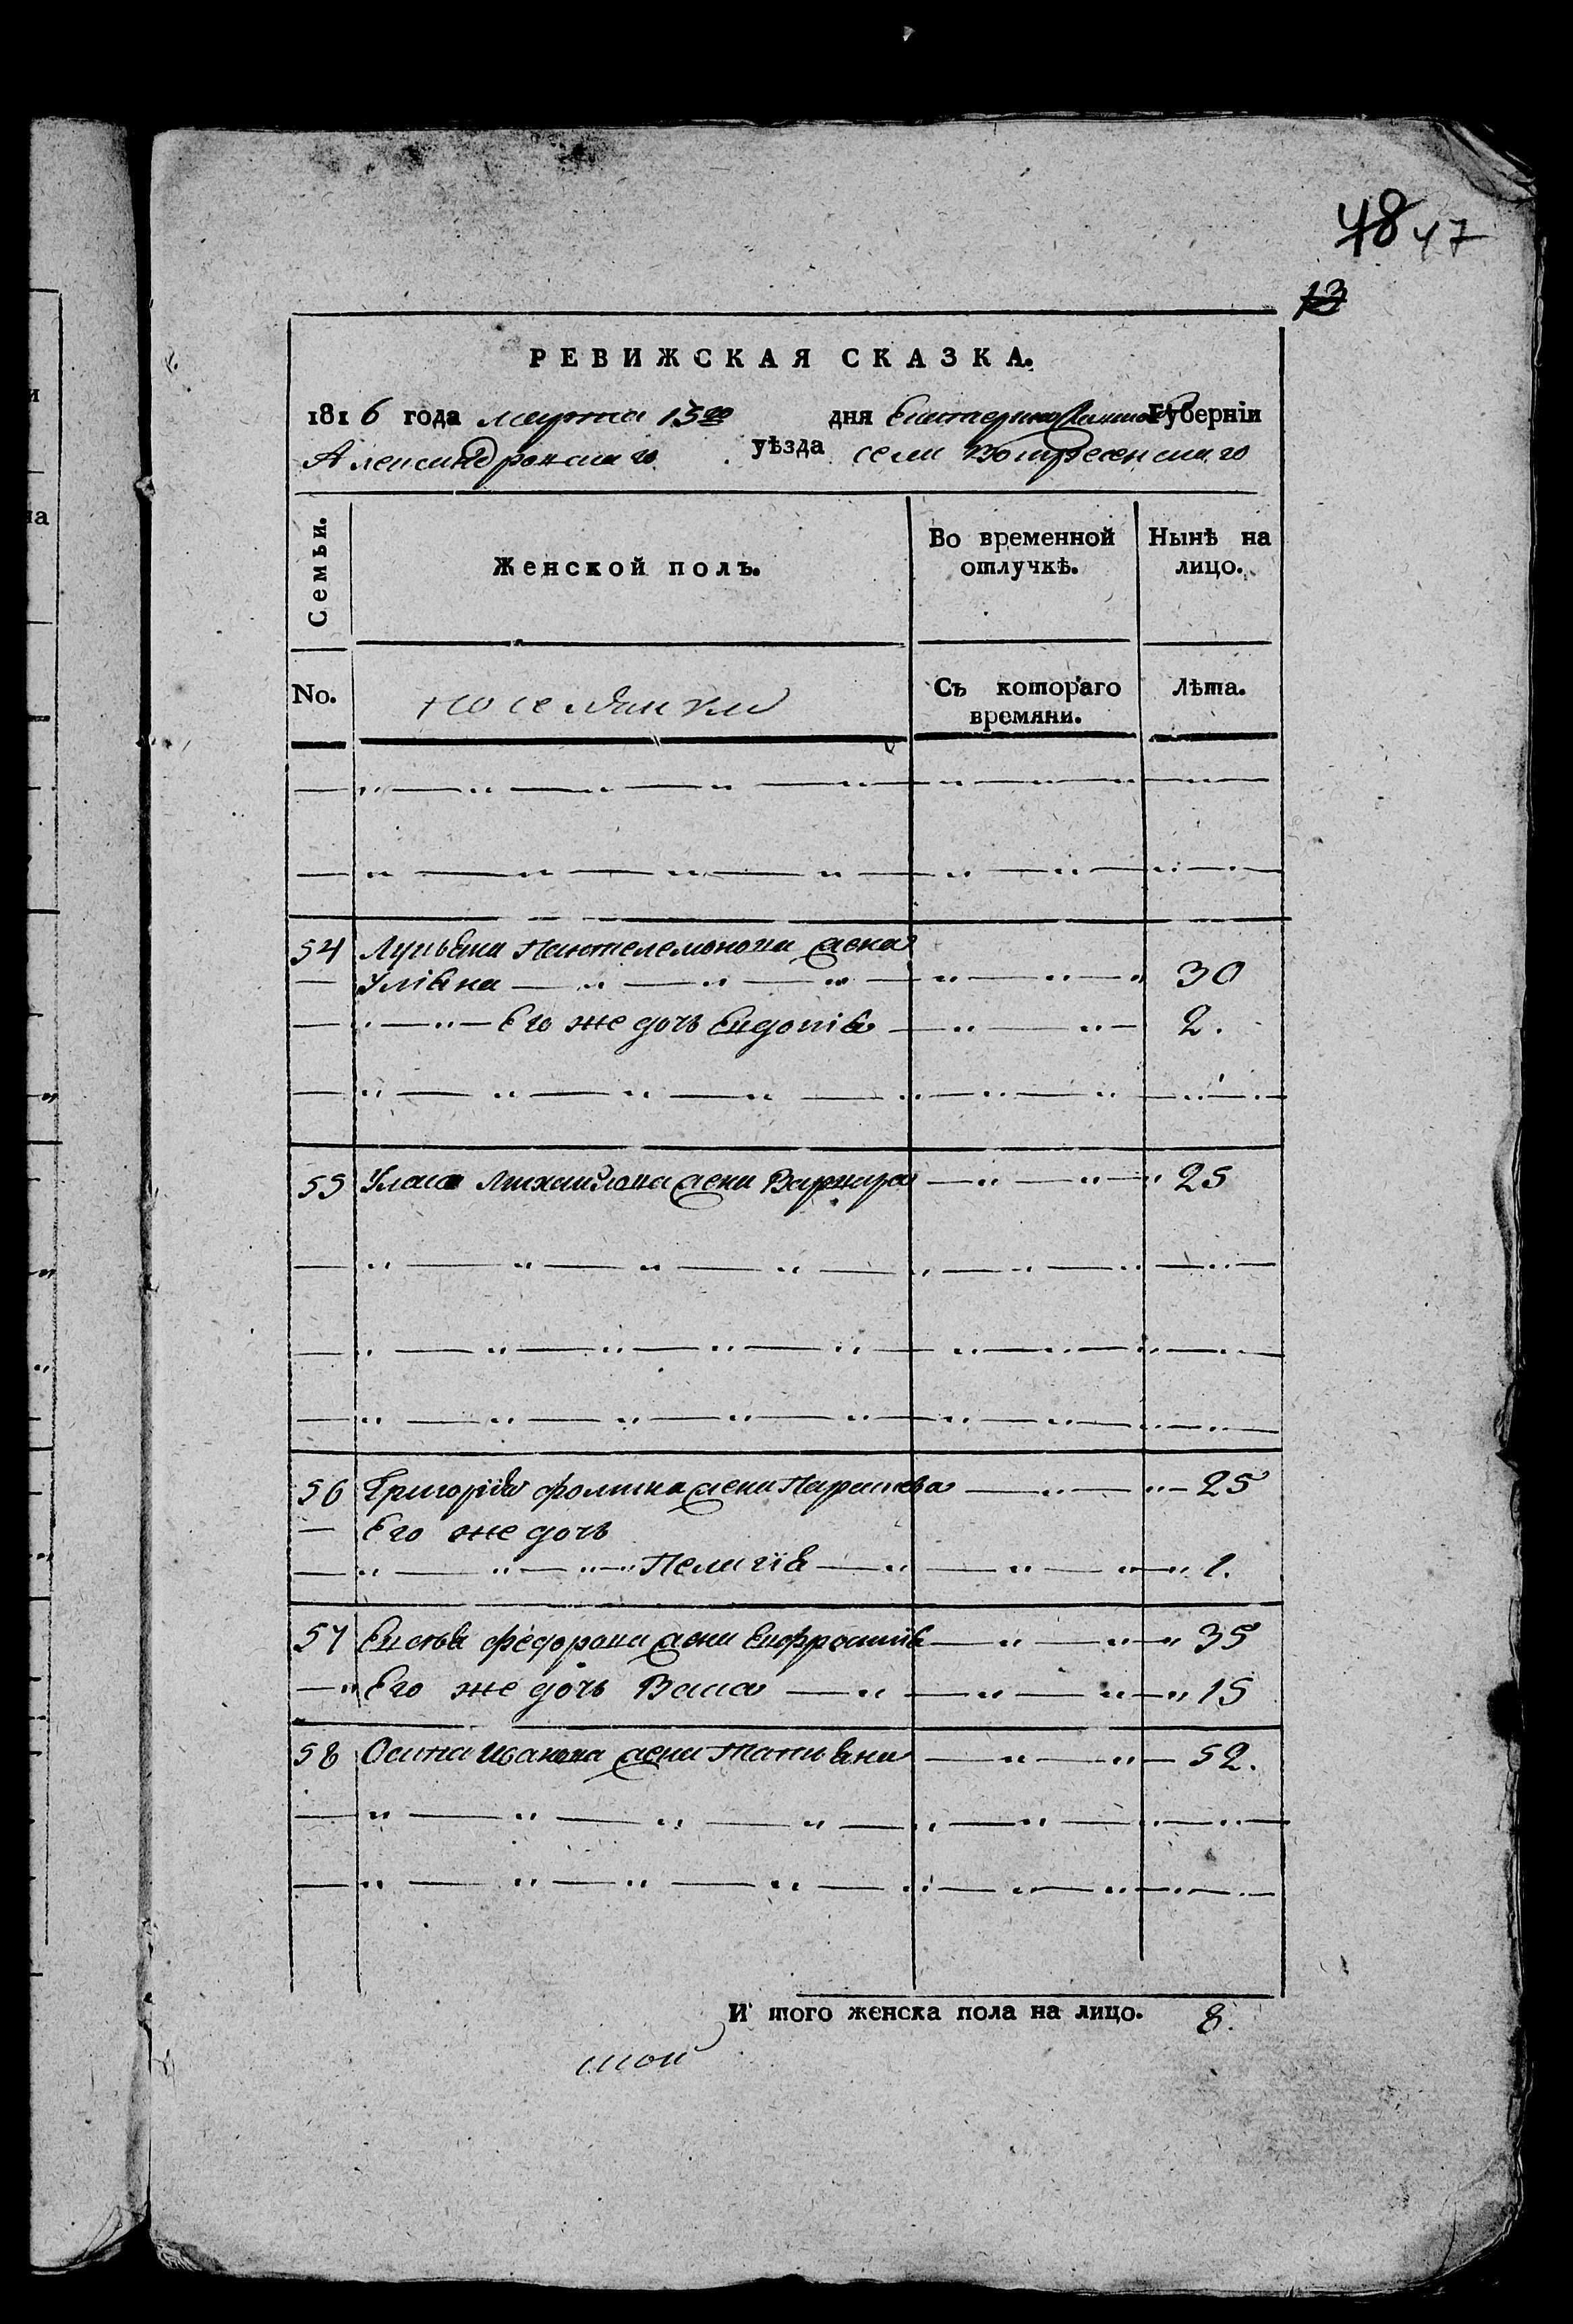 48 47
13
РЕВИЖСКАЯ СКАЗКА.
1816 года марта 15го дня Екатеринославской Губерніи
Александровскаго уѣзда села Воскресенскаго
Семьи.
Женской полъ.
Во временной отлучкѣ.
Нынѣ на лицо.
No.
поселянки
Съ котораго времяни.
Лѣта.
54 Лукьяна Пантелемонова жена
Уліяна 30
Его же дочь Евдокія 2.
55 Уласа Михайлова жена Варвара 25
56 Григорія Фомина жена Парасковья 25
Его же дочь
Пелагія 1.
57 Евсѣя Федорова жена Ефросинія 35
Его же дочь Васса 15
58 Осипа Иванова жена Татіяна 52.
И того женска пола на лицо. 8.